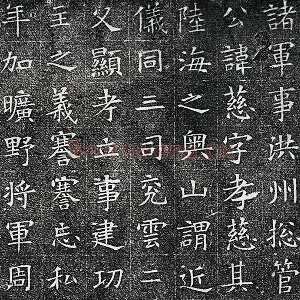 諸軍事洪州捴管
公諱慈字孝慈其
陸海之奥山謂近
儀同三司兖雲二
父顯孝立事建㓛
主之義謇謇忘私
年加曠野将軍周